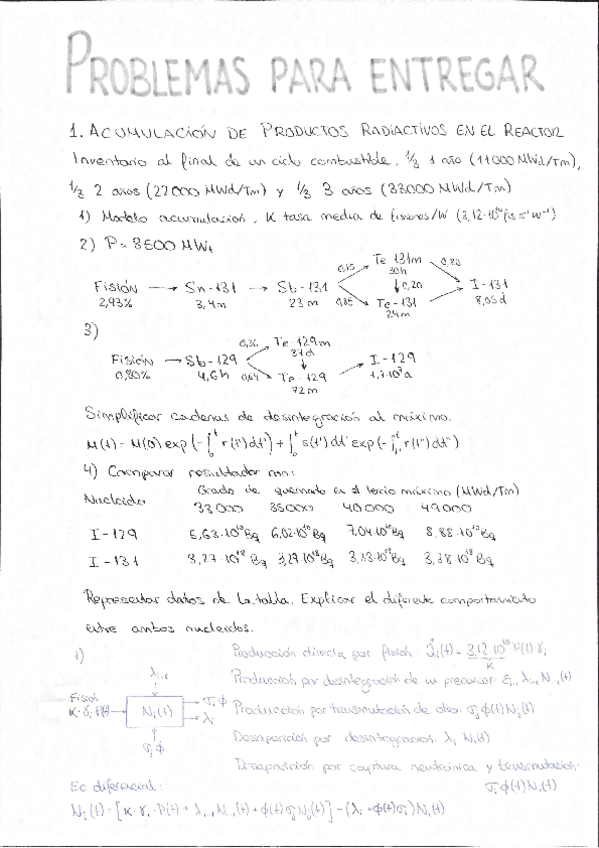 PROBLEMAS PARA ENTREGAR
1. ACUMULACIÓN DE PRODUCTOS RADIACTIVOS EN EL REACTOR
Inventario al final de un ciclo combustible, 1/3 1 año (11000 MWd/Tm),
1/3 2 años (22000 MWd/Tm) y 1/3 3 años (33000 MWd/Tm)
1) Modelo acumulación, K tasa media de fisiones/W (3,12·10¹⁰ fis s⁻¹ W⁻¹)
2) P = 3500 MWt
Te-131m
0,15 30h 0,80
Fisión → Sn-131 → Sb-131 ↓ 0,20 I-131
2,93% 3,4m 23m 0,85 Te-131 8,05d
24m
3)
0,36 Te-129m
37d
Fisión → Sb-129 ↓ I-129
0,80% 4,6h 0,64 Te-129 1,7·10⁷a
72m
Simplificar cadenas de desintegración al máximo.
M(t) = M(0) exp(-∫₀ᵗ r(t')dt') + ∫₀ᵗ s(t')dt' exp(-∫ₜ'ᵗ r(t'')dt'')
4) Comparar resultados con:
Nucleido Grado de quemado en el tercio máximo (MWd/Tm)
33000 35000 40000 49000
I-129 5,63·10¹⁰Bq 6,02·10¹⁰Bq 7,04·10¹⁰Bq 8,88·10¹⁰Bq
I-131 3,27·10¹⁸Bq 3,29·10¹⁸Bq 3,33·10¹⁸Bq 3,38·10¹⁸Bq
Representar datos de la tabla. Explicar el diferente comportamiento
entre ambos nucleidos.
1) Producción directa por fisión:
Producción por desintegración de un precursor:
Fisión Nᵢ(t) Producción por transmutación de otro: σⱼϕ(t)Nⱼ(t)
Desaparición por desintegración: λᵢNᵢ(t)
Desaparición por captura neutrónica y transmutación:
σᵢϕ(t)Nᵢ(t)
Ec diferencial:
Nᵢ(t) = [K·γᵢ·P(t) + λᵢ₋₁Nᵢ₋₁(t) + ϕ(t)σⱼNⱼ(t)] - (λᵢ + ϕ(t)σᵢ)Nᵢ(t)